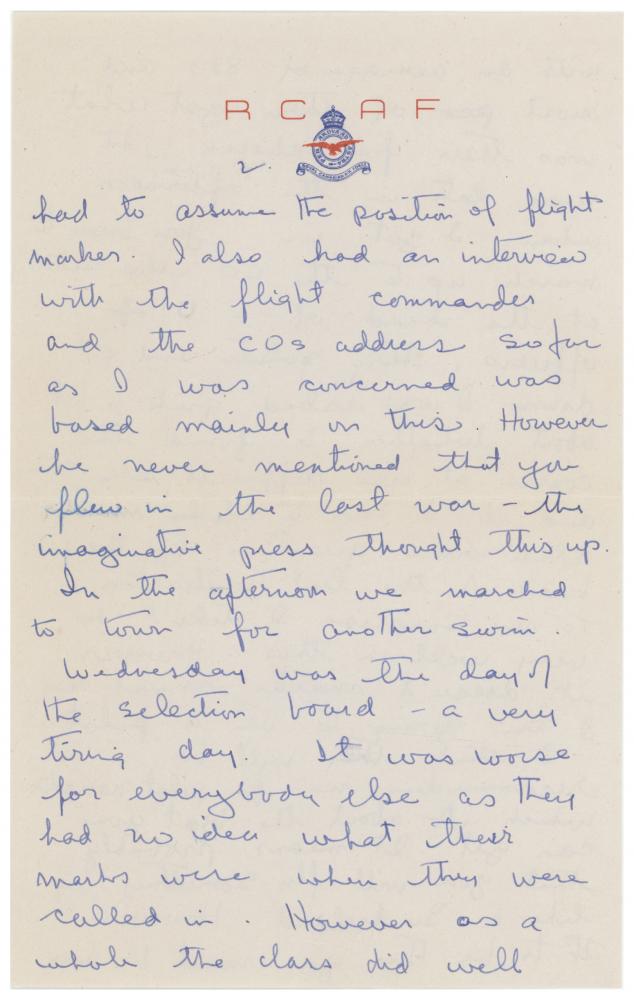 R C A F
2.
had to assume the position of flight
marker. I also had an interview
with the flight commander
and the COs address so far
as I was concerned was
based mainly on this. However
he never mentioned that you
flew in the last war – the
imaginative press thought this up.
In the afternoon we marched
to town for another swim.
Wednesday was the day of
the selection board – a very
tiring day. It was worse
for everybody else as they
had no idea what their
marks were when they were
called in. However as a
whole the class did well